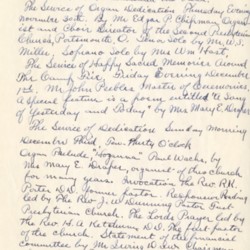 The Service of Organ Dedication Thursday Evening
November 30th. By Mr Edgar P Chapman, Organ-
ist and Choir Director of the Second Presbyterian
Church, Patterson N. O. Tenor Solo by Mr. W. J.
Miller. Soprano Solo by Mrs Wm Hard
The Service of Happy Sacred Memories Around
The Camp Fire, Friday Evening December
1st. Mr John Peebles Master of Ceremonies
A Special feature is a poem entitled "A Song
of Yesterday and Today" by Mrs Mary E. Draper
The Service of Dedication Sunday Morning
December Third, Two Thirty O'clock
Organ Prelude "Hosanna" Paul Wachs, by
Mrs Mary E. Draper, organist of this Church
for many years. Invocation, the Rev. R.H.
Potter D.D. Former Pastor. Responsive Reading
led by The Rev J. W. Dunning Pastor First
Presbyterian Church. The Lords Prayer led by
The Rev H. A. Ketchum D.D. The first pastor
of this Church. Statement of the financial
Committee by Mr Lewis D.